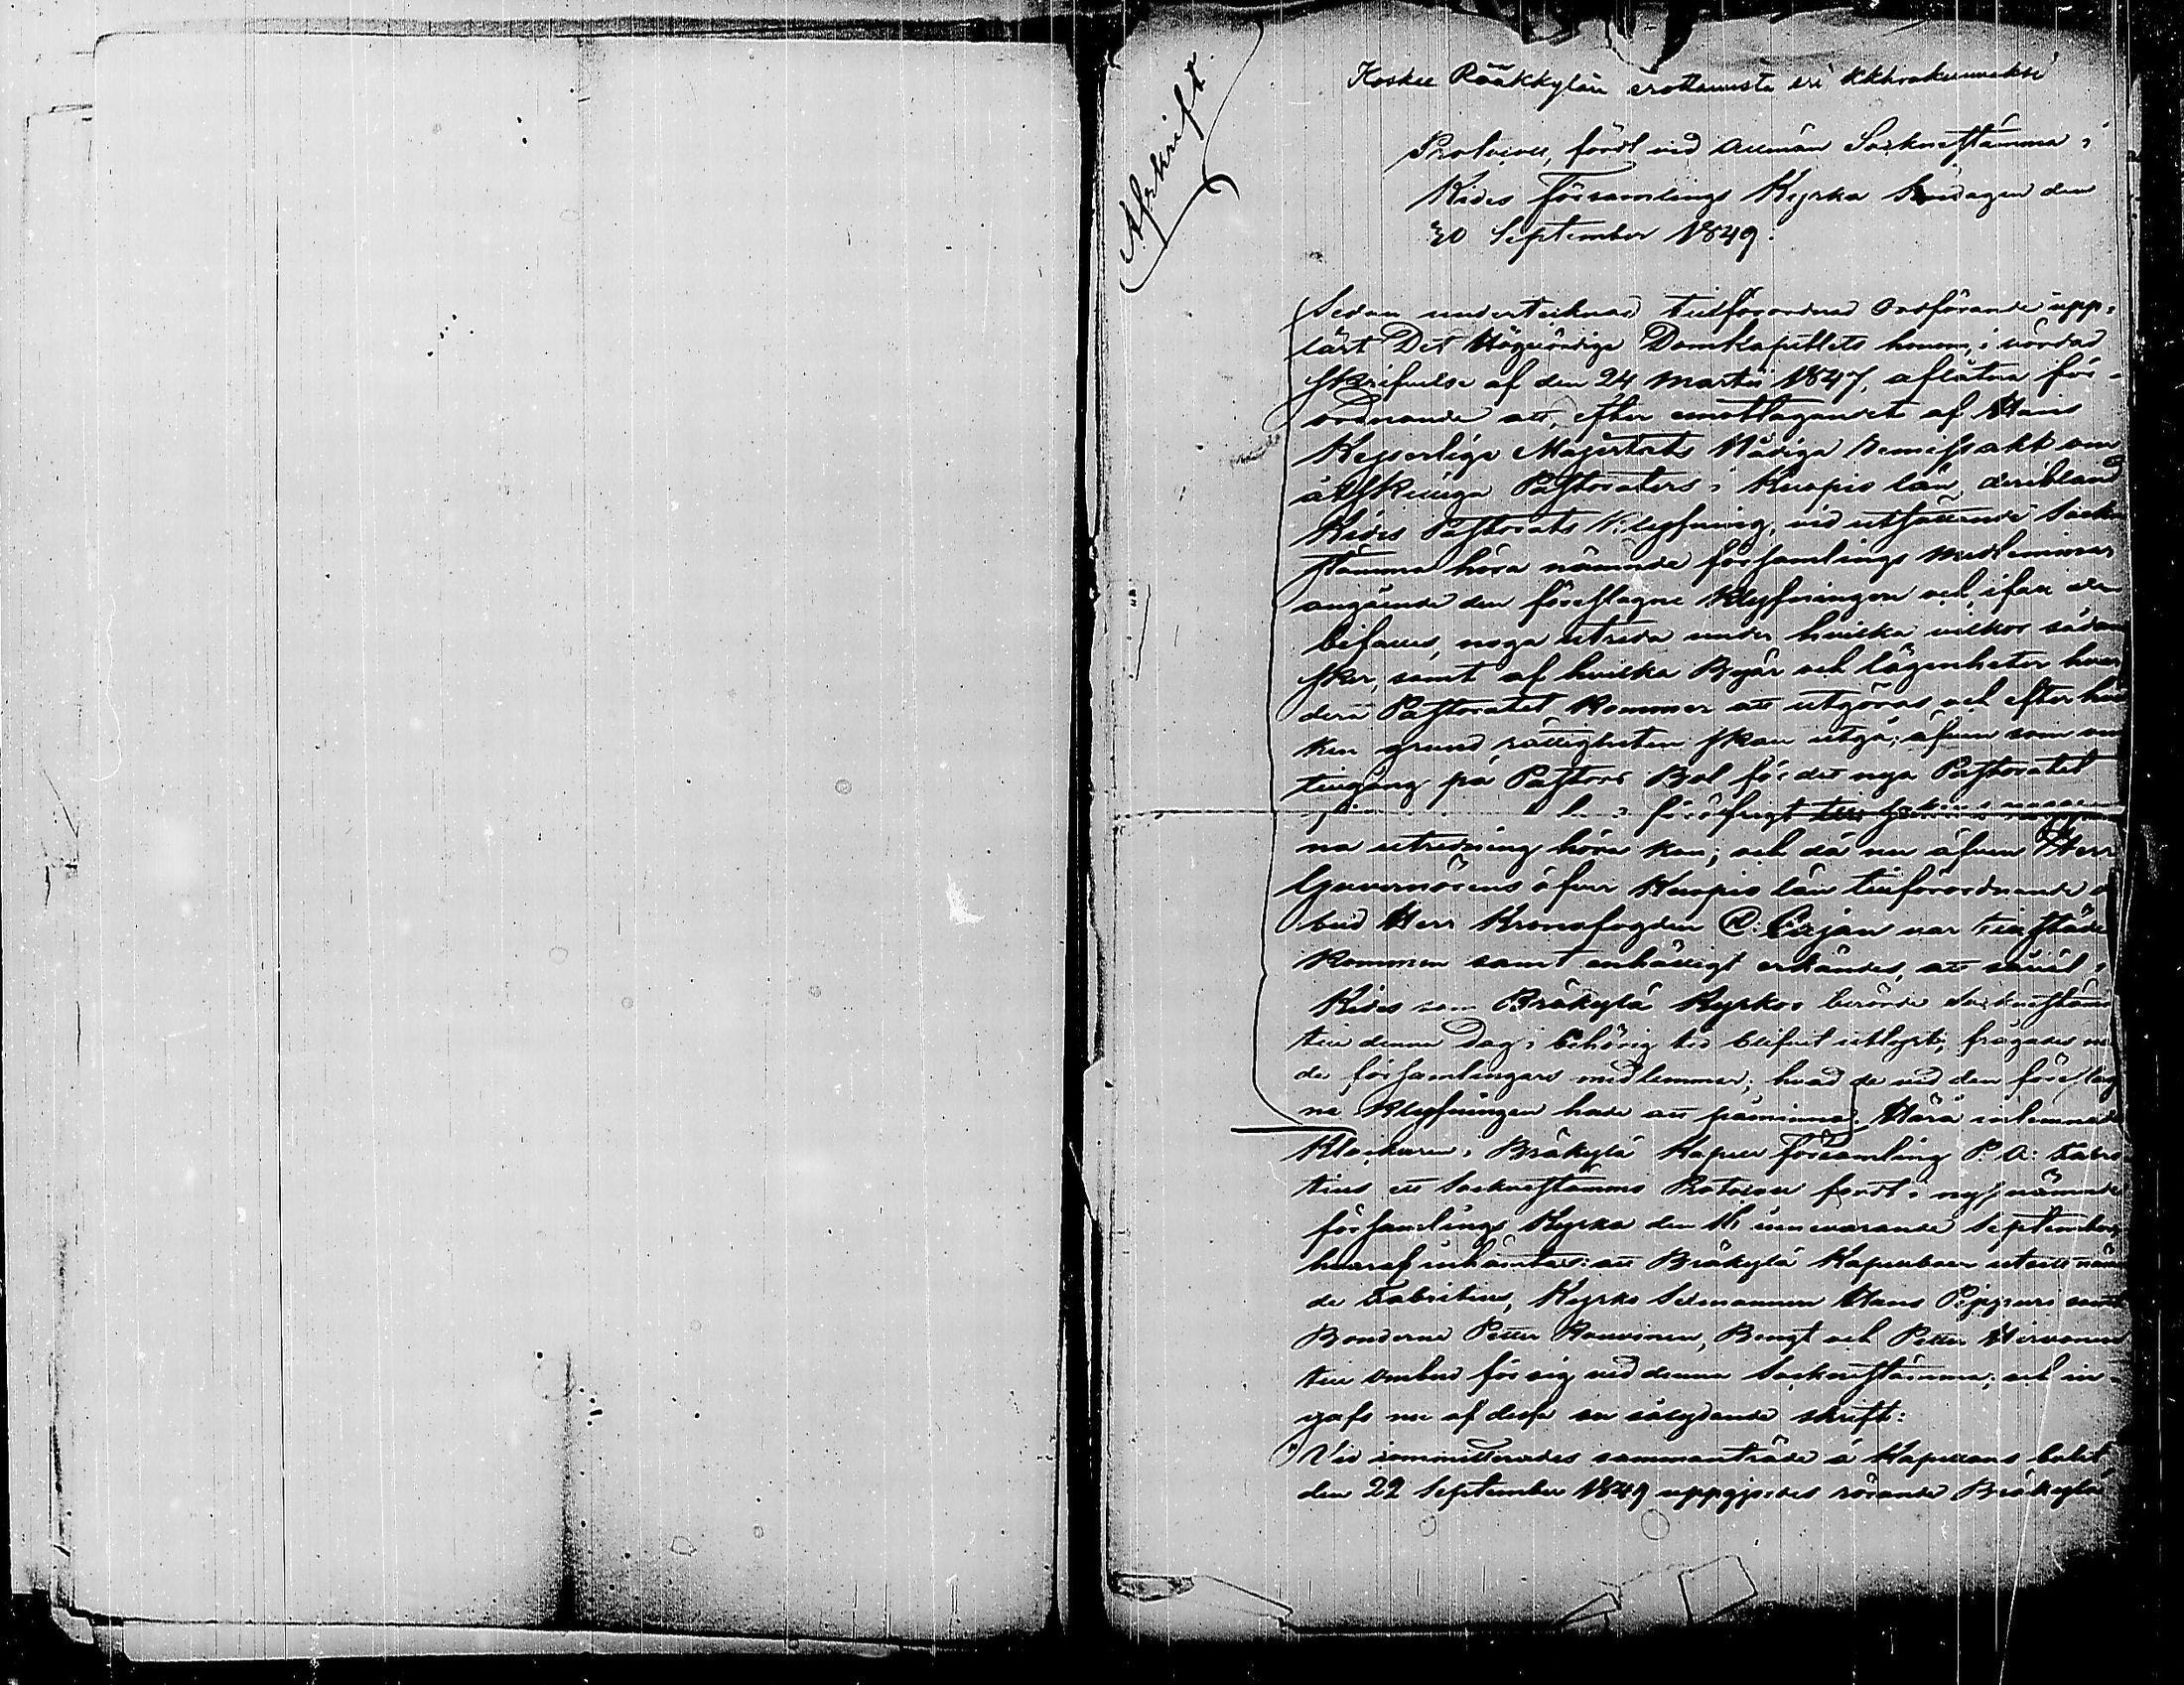 Afskrift.
Koskee Rääkkylän erottamista eri kkhrakunnaksi
Protocoll, fördt vid allmän Sockneftämma i
Kides Församlings Kyrka Söndagen den
30 September 1849.
Sedan undertecknad tillförordnad Ordförande upp=
läst Det Högvördige Domkapitlets honom, i vördad
skrifvelse af den 24 Martii 1847, aflåtna för-
ordnande att, efter emottagandet af Hans
Kejserliga Majestäts Nådiga Remiss akt om
åtskilliga Pastoraters i Kuopio län, deribland
Kides Pastorats Klyfning, vid utsattande Sockne
stämma höra nämnde församlings medlemmar
angående den föreslagne Klyfningen och, ifall den
bifalles, noga utreda under hvilka vilkor sådant
sker, samt af hvilka Byar och lägenheter hvar
dera Pastoratet kommer att utgöras och efter hvil
ken grund rättigheten skall utgå; äfven som om
tillgång på Pastors Bol för det nya Pastoratet
föröfrigt till
na utredning höra kan; och då nu äfven Herr
Guvernörens öfver Kuopio län tillförordnande om
bud Herr Kronofogden C. Cirjan var tillstädes
kommen samt enhälligt erkändes, att såväl i
Kides som Bräkylä Kyrkor berörde Sockneftämma
till denna Dag i behörig tid blifvit utlyst; frågades nu
de församlingars medlemmar, hvad de vid den föreslag
ne Klyfningen hade att påminna. Härå inlemnade
Klockaren i Bräkylä Kapell församling P. A: Fabri
tius ett Sockneftämmo Protocoll fördt i nyss nämnde
församlings Kyrka den 16 innevarande September,
hvaraf inhämtas: att Bräkylä Kapellboer utsett näm
de Fabritius, Kyrko Sexmannen Hans Pippuri samt
Bönderne Petter Rouvinen, Bengt och Petter Hirvonen
till ombud för sig vid denna Sockneftämma; och in-
gafs nu af desse en sålydande skrift:
"Vid committerades sammanträde å Kapellans bolet
den 22 September 1849 uppgjordes rörande Bräkylä